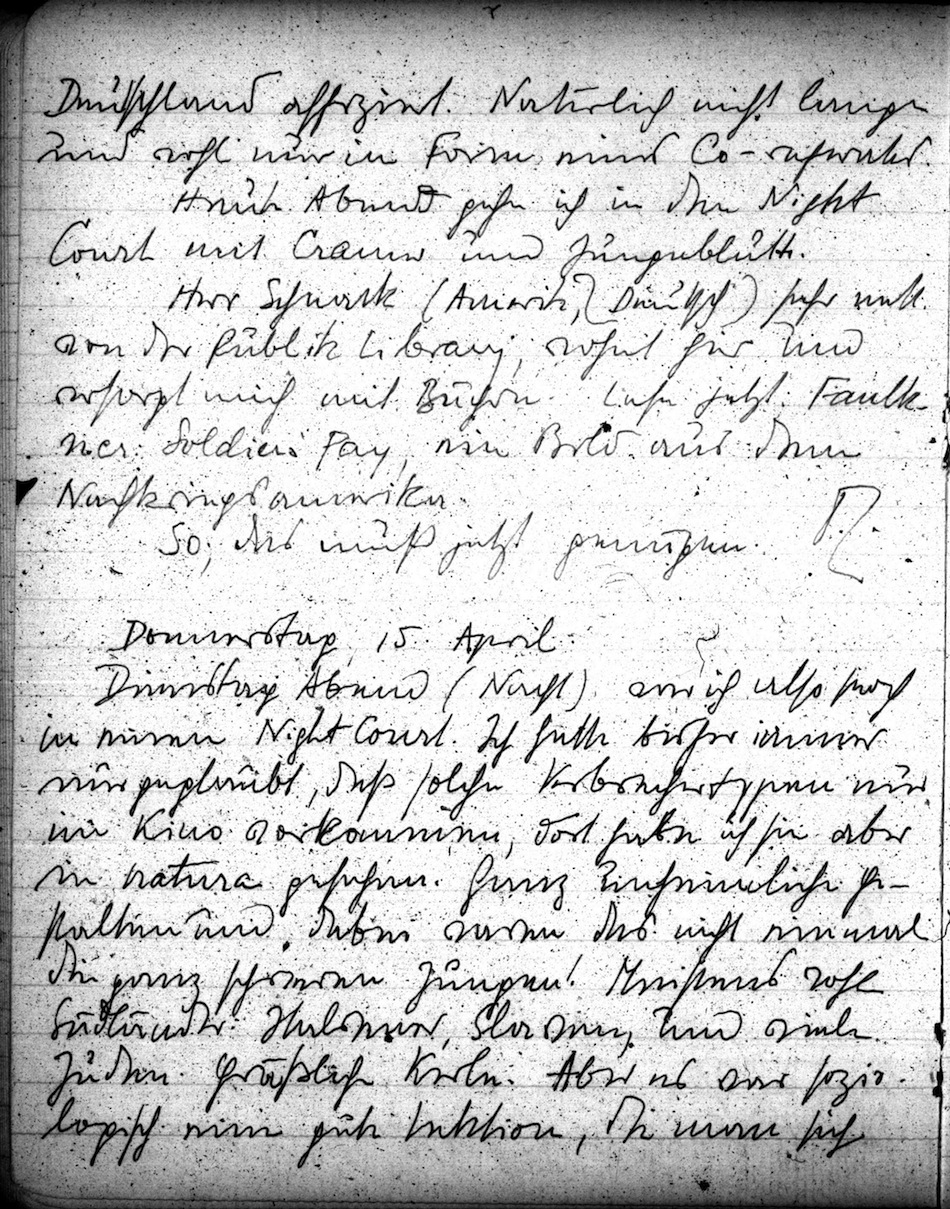 Deutschland affiziert. Natürlich nicht lange
und wohl nur in Form eines Co-referats.
Heute Abend gehe ich in den Night
Court mit Cramer und Jungeblüth.
Herr Schwark (Amerik, (Deutsch) sehr nett
von der Publik Library, wohnt hier und
versorgt mich mit Büchern. Lese jetzt: Faulk-
ner: Soldiers Pay, ein Bild aus dem
Nachkriegsamerika.
So, das muß jetzt genügen.
Donnerstag, 15 April
Dienstag Abend (Nacht) war ich also noch
in einem Night Court. Ich hatte bisher immer
nur geglaubt, daß solche Verbrechertypen nur
im Kino vorkommen, dort habe ich sie aber
in natura gesehen. Ganz unheimliche Ge-
stalten und dabei waren das nicht einmal
die ganz schweren Jungen! Meistens wohl
Südländer: Italiener, Slaven, und viele
Juden. Gräßliche Kerle. Aber es war sozio-
logisch eine gute Lektion, die man sich